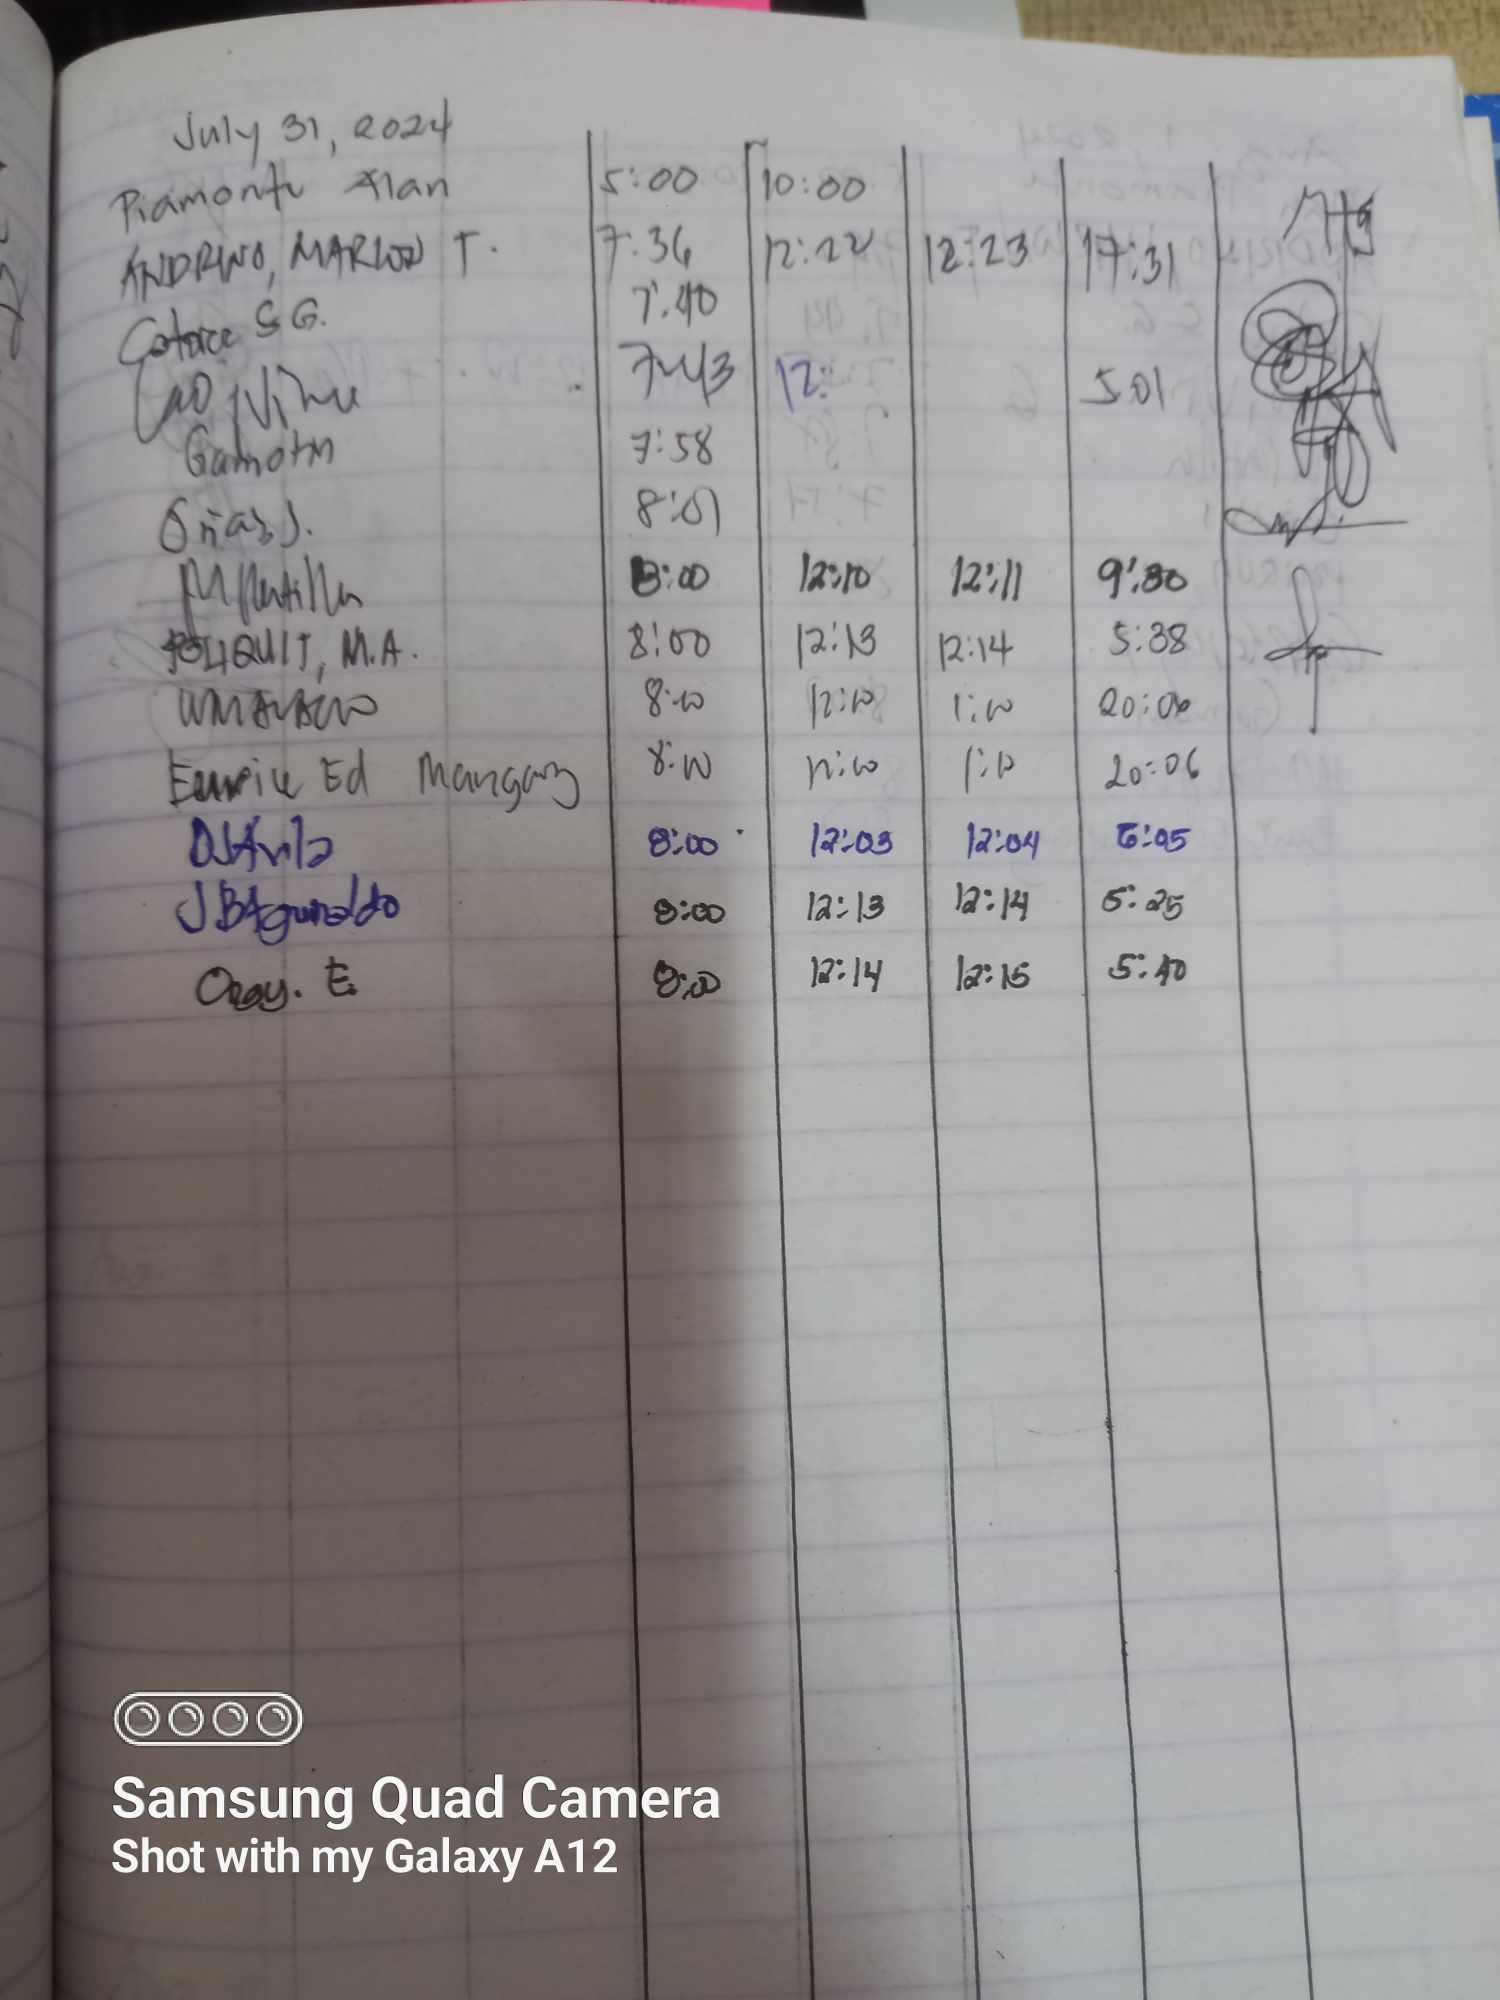 July 31, 2024
Piamonte Alan 5:00 10:00
ANDRINO, MARLON T. 7:36 12:22 12:23 17:31
Catorce S G. 7:40
7:43 12: 5:01
Gamotin 7:58
Oñas J. 8:01
8:00 12:10 12:11 9:30
POLIQUIT, M.A. 8:00 12:13 12:14 5:38
8:10 12:10 1:10 20:06
Ed Mangaoang 8:10 12:10 1:10 20:06
DJAvila 8:00 12:03 12:04 5:05
JBAguinaldo 8:00 12:13 12:14 5:25
Ogay. E. 8:00 12:14 12:15 5:40
Samsung Quad Camera
Shot with my Galaxy A12